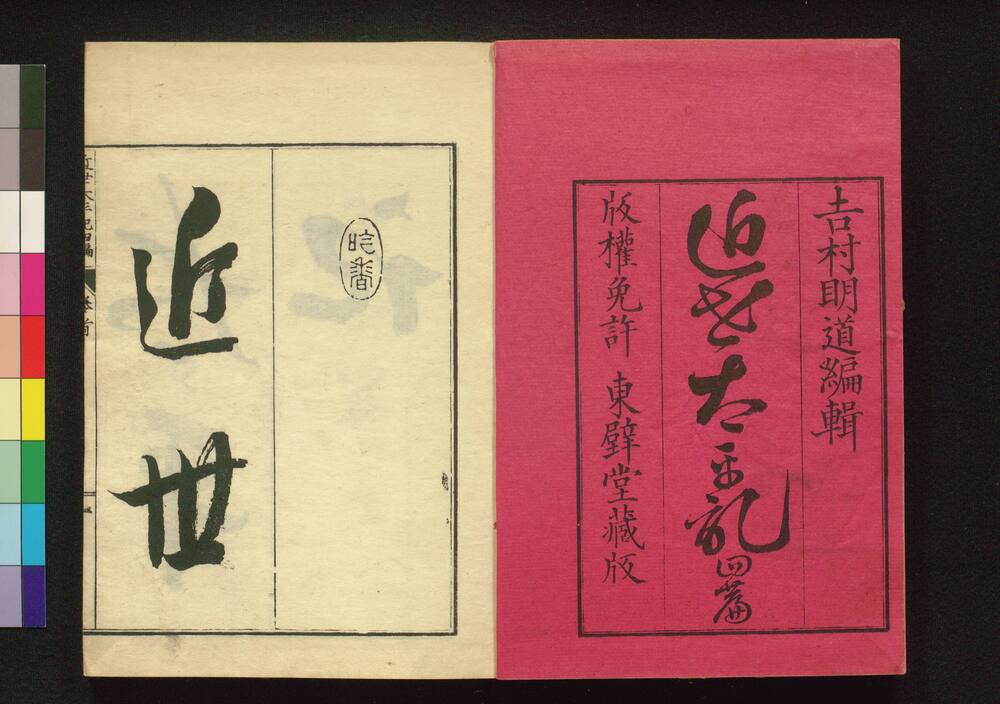 吉村明道編輯
近世太平記四篇
版權免許 東壁堂藏版
近世
近世太平記四編 卷首